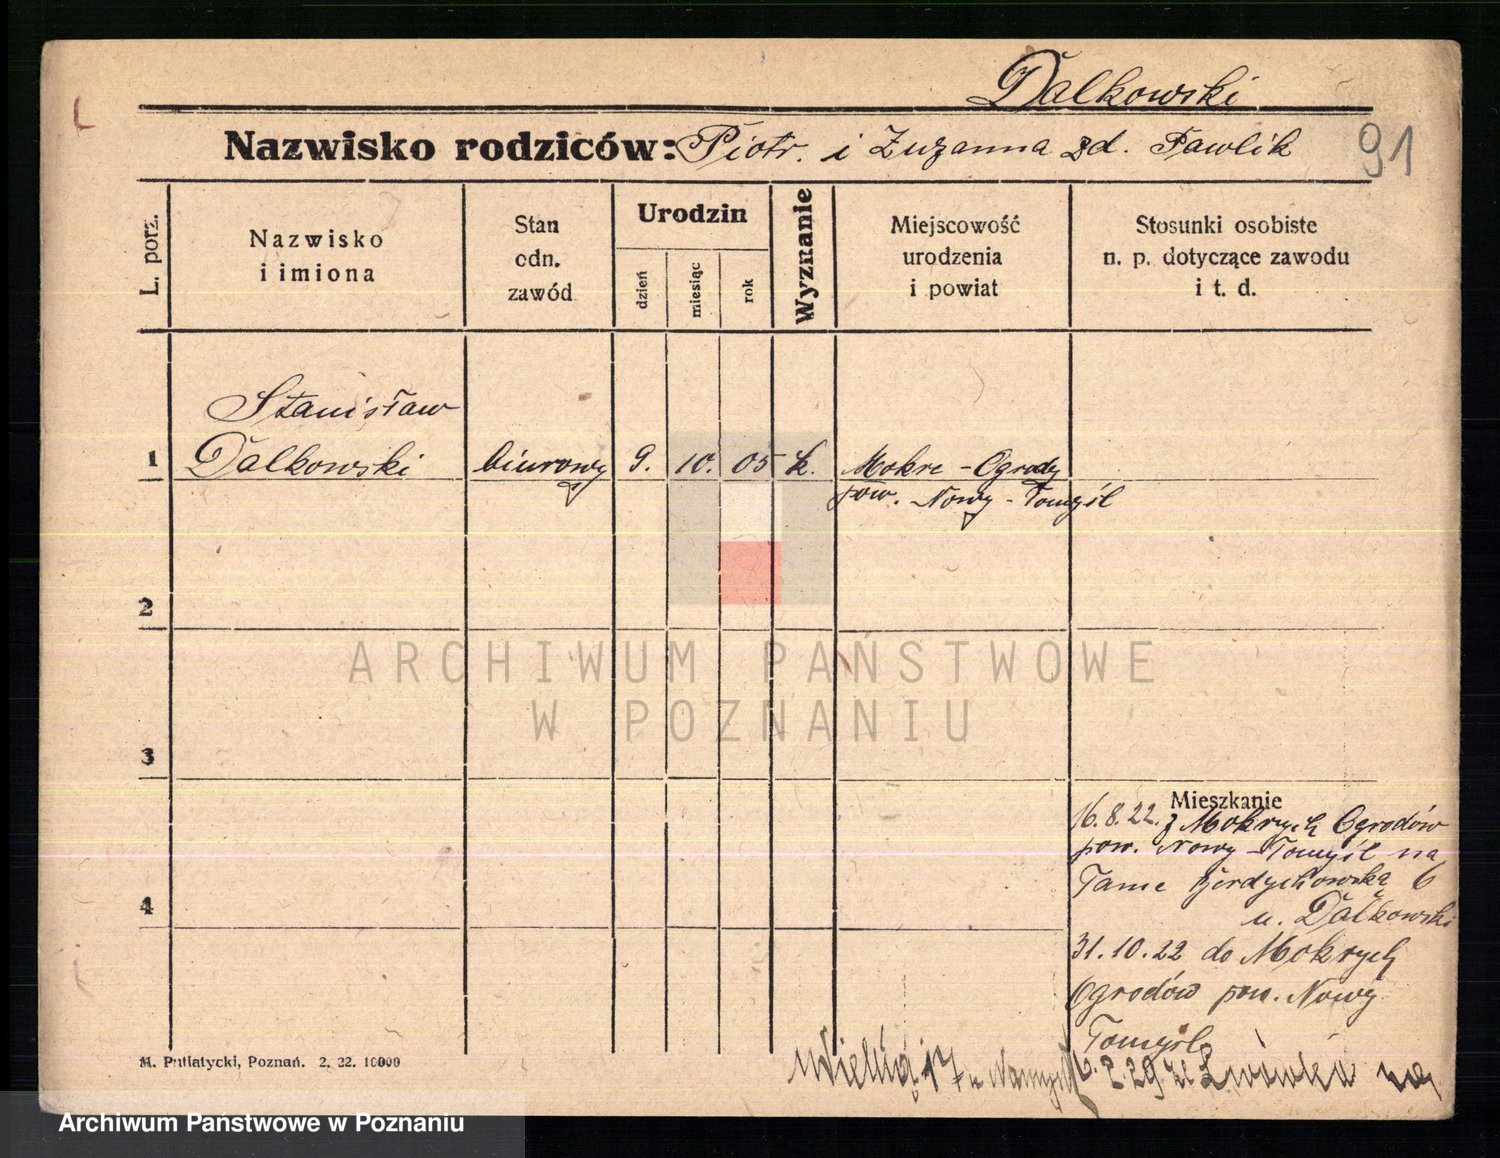 Dalkowski
Nazwisko rodziców: Piotr. i Zuzanna zd. Pawlik
91
L. porz.
Nazwisko
i imiona
Stan
odn.
zawód
Urodzin
dzień
miesiąc
rok
Wyznanie
Miejscowość
urodzenia
i powiat
Stosunki osobiste
n. p. dotyczące zawodu
i t. d.
Stanisław
1 Dalkowski biurowy 9. 10. 05 k. Mokre - Ogrody
pow. Nowy - Tomyśl
2
3
4
ARCHIWUM PAŃSTWOWE
W POZNANIU
Mieszkanie
16.8.22. z Mokrych Ogrodów
pow. Nowy - Tomyśl na
Tame Berdychowską 6
u. Dalkowski
31.10.22 do Mokrych
Ogrodów pow. Nowy
Tomyśl
16.2.29 ze Lwówka na
Wielką 17 u
M. Putiatycki, Poznań. 2. 22. 10000
Archiwum Państwowe w Poznaniu